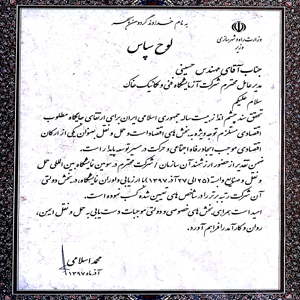 به نام خداوند گردنده سپهر
وزارت راه و شهرسازی
وزیر
لوح سپاس
جناب آقای مهندس حسینی
مدیرعامل محترم شرکت آزمایشگاه فنی و مکانیک خاک
سلام علیکم
تحقق سند چشم انداز بیست ساله جمهوری اسلامی ایران برای ارتقای جایگاه مطلوب
اقتصادی مستلزم توجه ویژه به بخش های اقتصاد است و حمل و نقل بعنوان یکی از ارکان
اقتصادی موجب ایجاد رفاه اجتماعی و حرکت در مسیر توسعه پایدار است.
ضمن تقدیر از حضور ارزشمند آن سازمان / شرکت محترم در سومین نمایشگاه بین المللی حمل
و نقل و صنایع وابسته (۲۵ الی ۲۷ آذر ۱۳۹۷) با ارزیابی داوران نمایشگاه، در بخش دولتی
آن شرکت رتبه برتر را در شاخص های تعیین شده کسب نموده است.
امید است همراهی بخش های خصوصی و دولتی موجبات دستیابی به حمل و نقل ایمن،
روان و کارآمد را فراهم آورد.
محمد اسلامی
آذرماه ۱۳۹۷